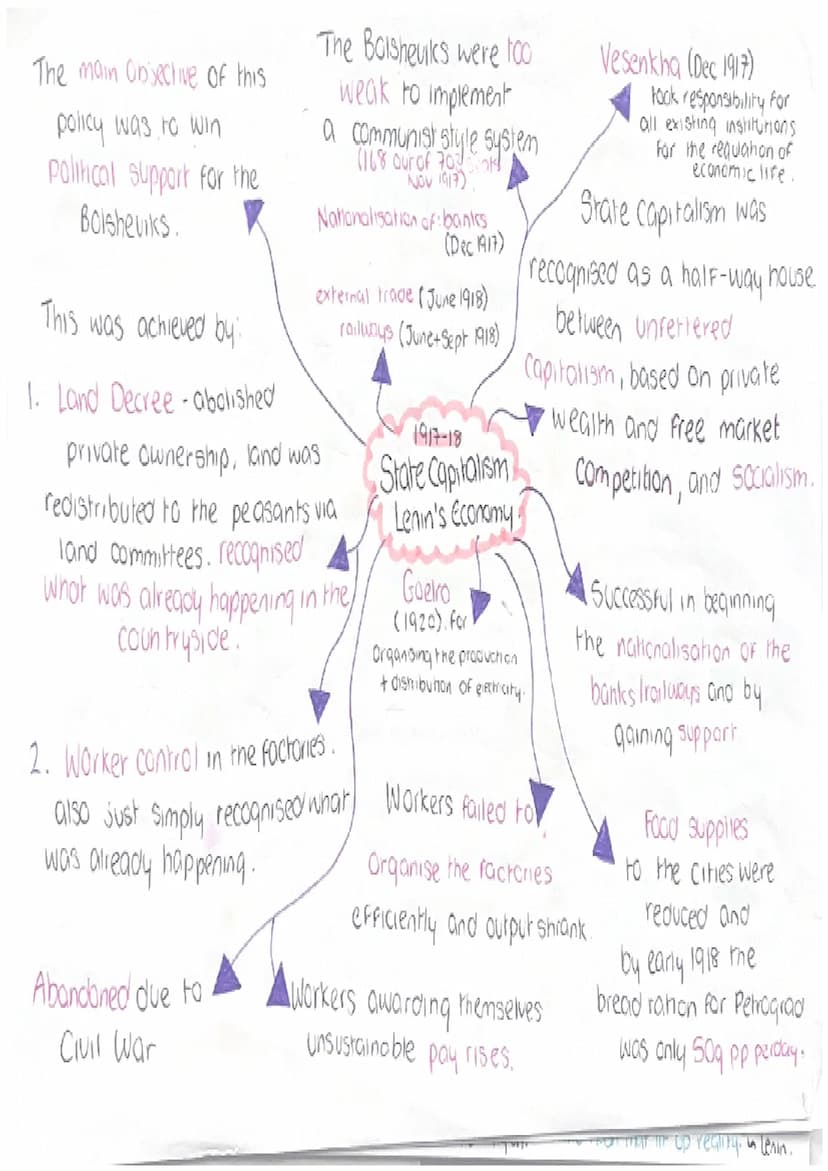 The main objective of this
policy was to win
political support for the
Bolsheviks.
This was achieved by:
1. Land Decree - abolished
private ownership, land was
redistributed to the peasants via
land committees. recognised
what was already happening in the
countryside.
2. Worker control in the factories.
also just simply recognised what
was already happening.
Abandoned due to
Civil War
The Bolsheviks were too
weak to implement
a communist style system
(168 out of 703
Nov 1917).
Nationalisation of banks
(Dec 1917)
external trade (June 1918)
railways (June + Sept 1918)
1917-18
State Capitalism
Lenin's Economy.
Goelro
(1920) for
organising the production
+ distribution of electricity.
Workers failed to
organise the factories
efficiently and output shrank.
Workers awarding themselves
unsustainable pay rises.
Vesenkha (Dec 1917)
took responsibility for
all existing institutions
for the reguation of
economic life.
State Capitalism was
recognised as a half-way house
between unfettered
capitalism, based on private
wealth and free market
competition, and socialism.
Successful in beginning
the nationalisation of the
banks/railways and by
gaining support
Food supplies
to the cities were
reduced and
by early 1918 the
bread ration for Petrograd
was only 50g pp perday.
up reality. in Lenin.